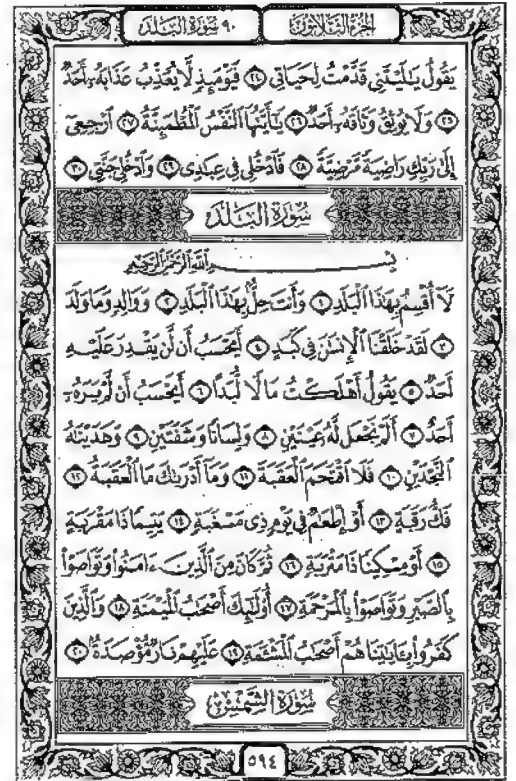 الجزء الثلاثون
٩٠ سورة البلد
يَقُولُ يَٰلَيْتَنِى قَدَّمْتُ لِحَيَاتِى ٢٤ فَيَوْمَئِذٍ لَّا يُعَذِّبُ عَذَابَهُۥٓ أَحَدٌ
٢٥ وَلَا يُوثِقُ وَثَاقَهُۥٓ أَحَدٌ ٢٦ يَٰٓأَيَّتُهَا ٱلنَّفْسُ ٱلْمُطْمَئِنَّةُ ٢٧ ٱرْجِعِىٓ
إِلَىٰ رَبِّكِ رَاضِيَةً مَّرْضِيَّةً ٢٨ فَٱدْخُلِى فِى عِبَٰدِى ٢٩ وَٱدْخُلِى جَنَّتِى ٣٠
سُورَةُ الْبَلَدِ
بِسْمِ ٱللَّهِ ٱلرَّحْمَٰنِ ٱلرَّحِيمِ
لَآ أُقْسِمُ بِهَٰذَا ٱلْبَلَدِ ١ وَأَنتَ حِلٌّۢ بِهَٰذَا ٱلْبَلَدِ ٢ وَوَالِدٍ وَمَا وَلَدَ
٣ لَقَدْ خَلَقْنَا ٱلْإِنسَٰنَ فِى كَبَدٍ ٤ أَيَحْسَبُ أَن لَّن يَقْدِرَ عَلَيْهِ
أَحَدٌ ٥ يَقُولُ أَهْلَكْتُ مَالًا لُّبَدًا ٦ أَيَحْسَبُ أَن لَّمْ يَرَهُۥٓ
أَحَدٌ ٧ أَلَمْ نَجْعَل لَّهُۥ عَيْنَيْنِ ٨ وَلِسَانًا وَشَفَتَيْنِ ٩ وَهَدَيْنَٰهُ
ٱلنَّجْدَيْنِ ١٠ فَلَا ٱقْتَحَمَ ٱلْعَقَبَةَ ١١ وَمَآ أَدْرَىٰكَ مَا ٱلْعَقَبَةُ ١٢
فَكُّ رَقَبَةٍ ١٣ أَوْ إِطْعَٰمٌ فِى يَوْمٍ ذِى مَسْغَبَةٍ ١٤ يَتِيمًا ذَا مَقْرَبَةٍ
١٥ أَوْ مِسْكِينًا ذَا مَتْرَبَةٍ ١٦ ثُمَّ كَانَ مِنَ ٱلَّذِينَ ءَامَنُوا۟ وَتَوَاصَوْا۟
بِٱلصَّبْرِ وَتَوَاصَوْا۟ بِٱلْمَرْحَمَةِ ١٧ أُو۟لَٰٓئِكَ أَصْحَٰبُ ٱلْمَيْمَنَةِ ١٨ وَٱلَّذِينَ
كَفَرُوا۟ بِـَٔايَٰتِنَا هُمْ أَصْحَٰبُ ٱلْمَشْـَٔمَةِ ١٩ عَلَيْهِمْ نَارٌ مُّؤْصَدَةٌۢ ٢٠
سُورَةُ الشَّمْسِ
٥٩٤